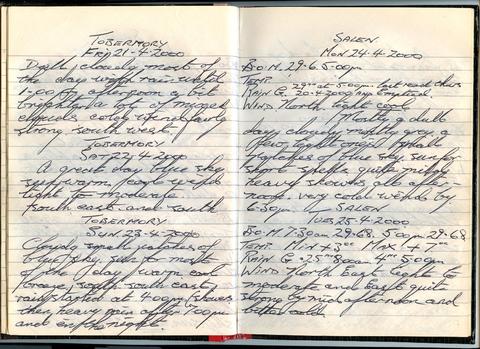 TOBERMORY
FRI 21-4-2000
Dull, cloudy most of
the day with rain until
1-00pm afternoon a bit
brighter a lot of mixed
clouds cold wind fairly
strong south west
TOBERMORY
SAT 22-4-2000
A great day blue sky
sun warm, people winds
light to moderate
south east and south
TOBERMORY
SUN 23-4-2000
Cloudy small patches of
blue sky, sun for most
of the day / warm east
breeze, south south east,
rain started at 4.00pm showers
then heavy rain after 7.00pm
and into the night.
SALEN
MON 24-4-2000
B.O.M. 29.6. 5.00pm
TEMP.
RAIN G. .29" at 5.00pm. last read thus
20-4-2000 and emptied.
WIND North light cool
Mostly a dull
day cloudy mostly grey, a
few light ones / small
patches of blue sky. sun for
short spells quite misty
heavy showers all after-
noon. very cold winds by
6-30pm. SALEN
TUES 25-4-2000
B.O.M. 7.30am 29.68. 5.00pm 29.68
TEMP. MIN + 3°° MAX + 7°°
RAIN G. .25" 8.00am 4"" 5.00pm
WIND North East light to
moderate and East quite
strong by mid afternoon and
bitter cold